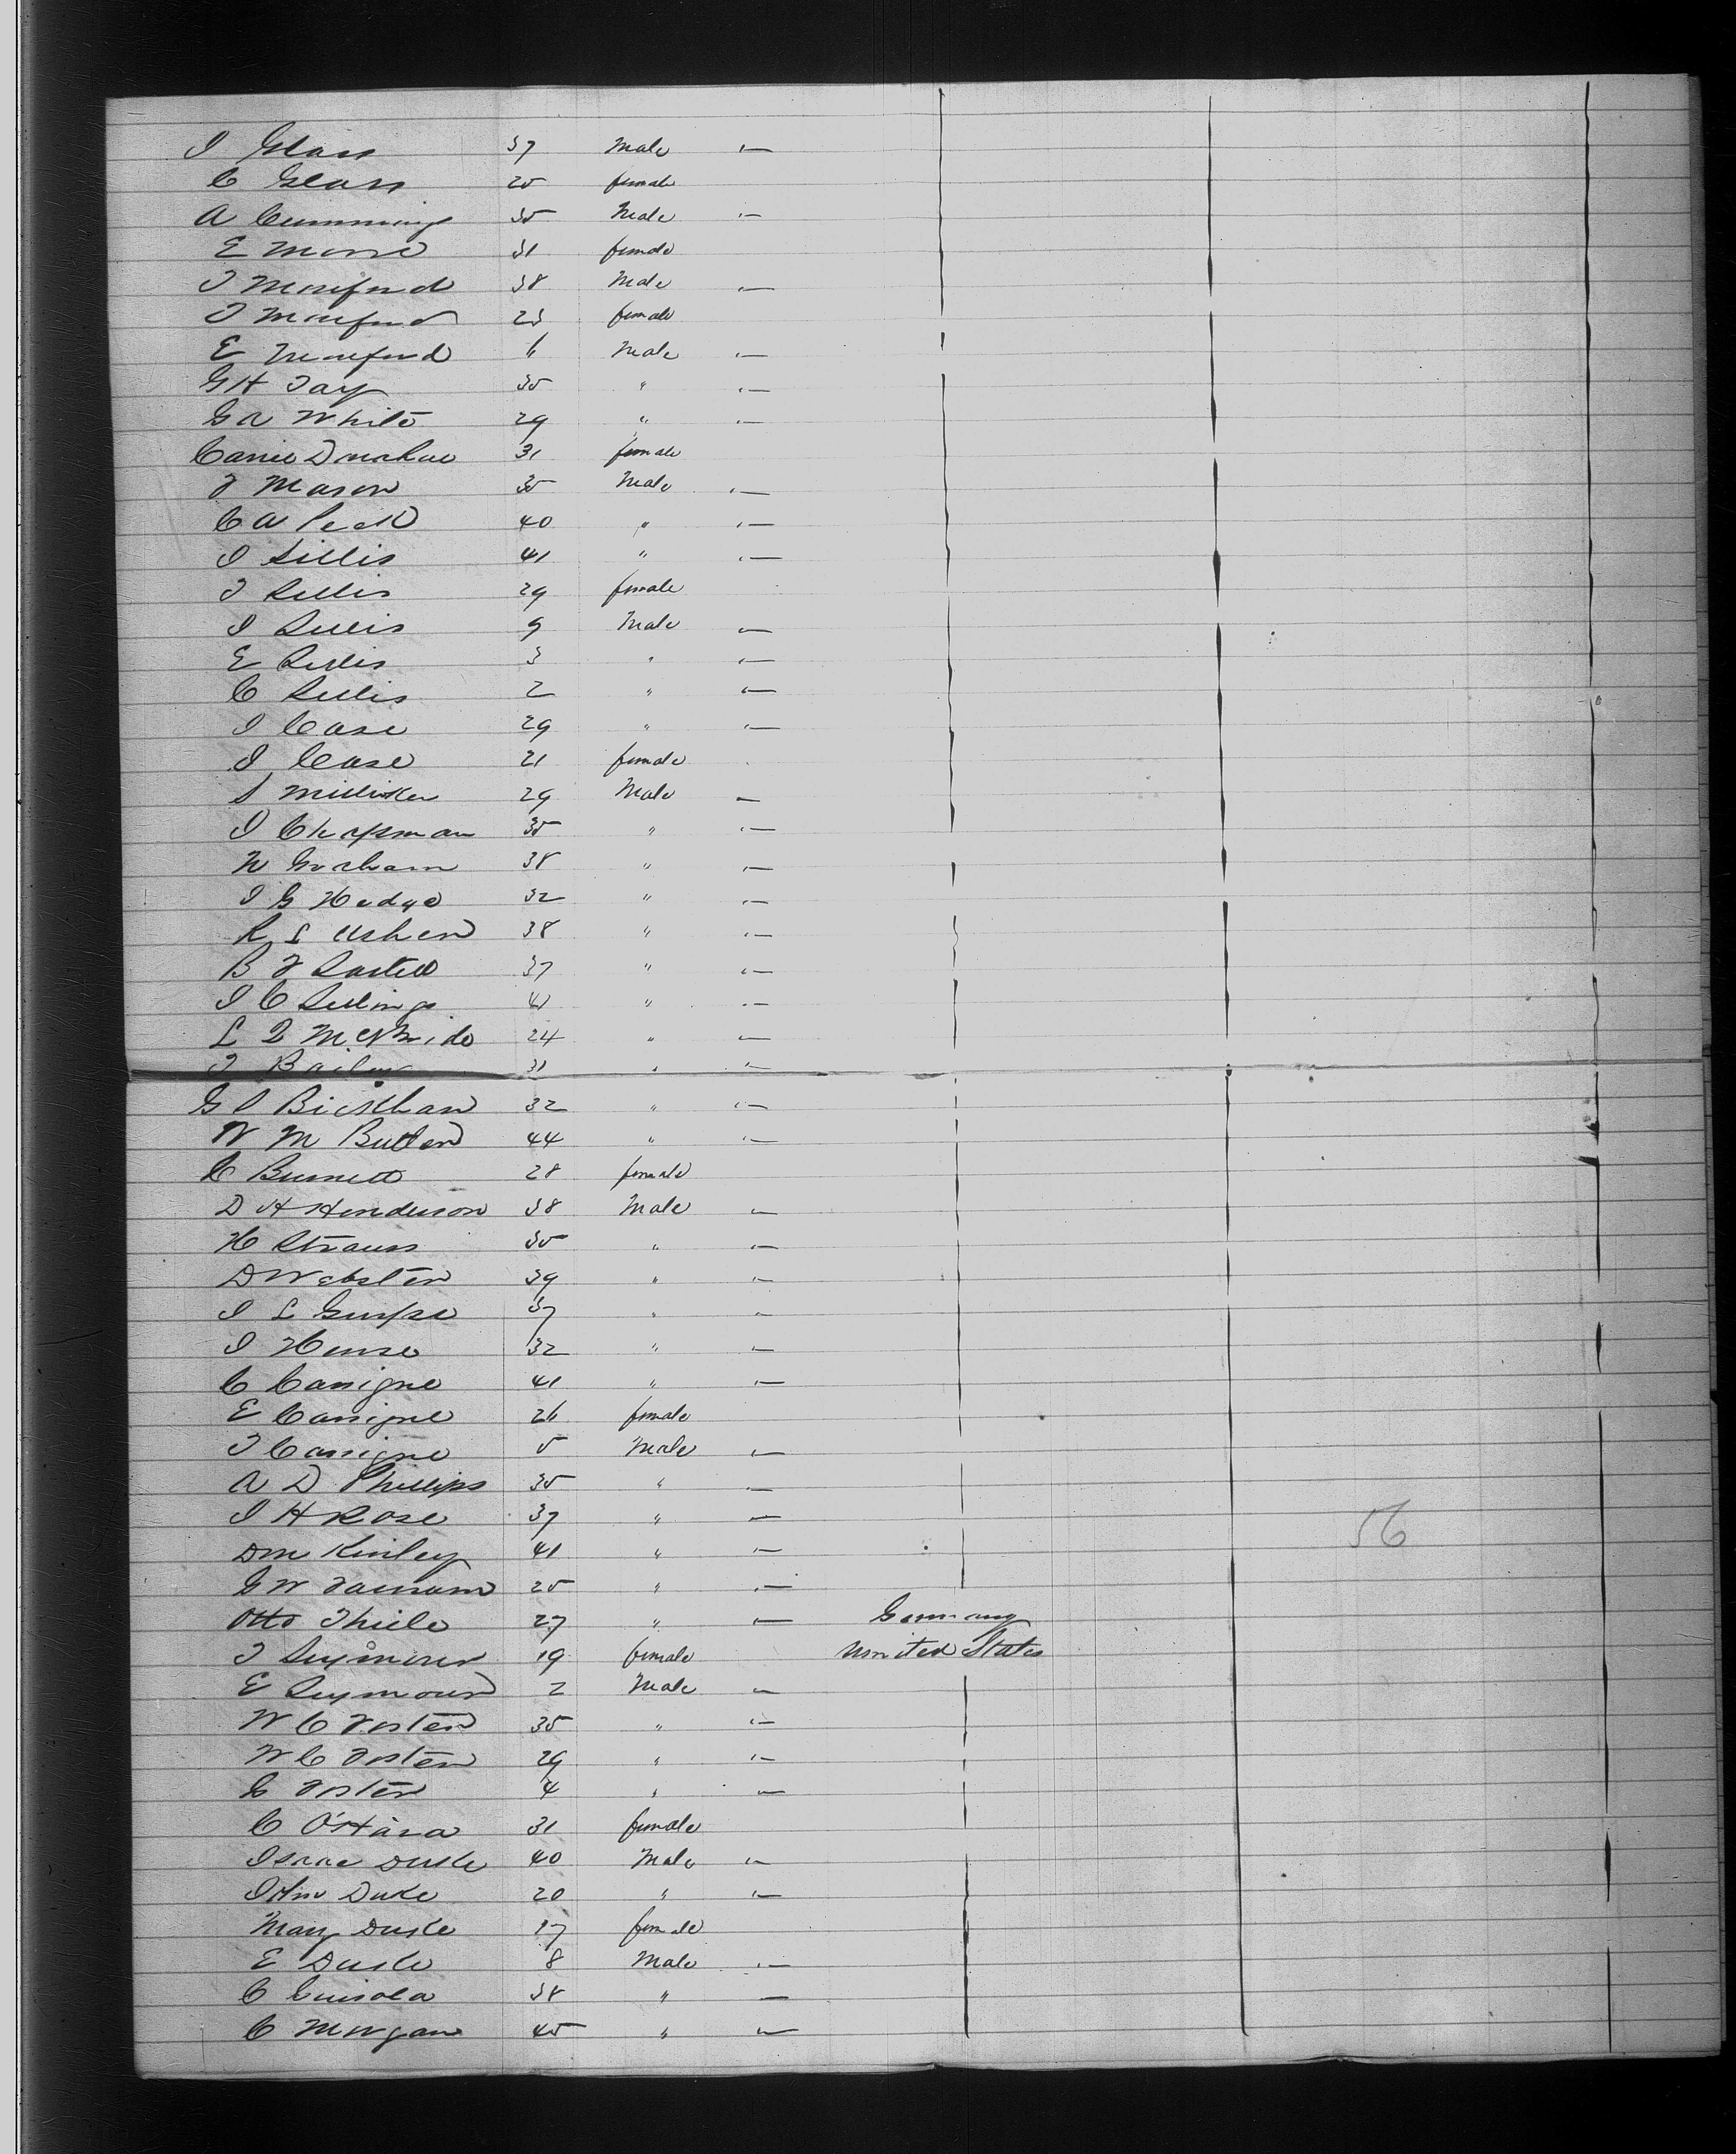 I Glass 37 Male —
C Glass 25 female
A Cummings 35 Male —
E Morse 31 female
T Monford 38 Male —
T Monford 23 female
E Monford 6 Male —
G H Tay 35 " —
G A White 29 " —
Carrie Donahue 31 female
T Mason 35 Male —
C A Peck 40 " —
I Lillis 41 " —
T Lillis 29 female
I Lillis 9 Male —
E Lillis 3 " —
C Lillis 2 " —
I Case 29 " —
I Case 21 female
S Milliken 29 Male —
I Chapman 35 " —
N Graham 38 " —
I G Hedge 32 " —
R L Usher 38 " —
B F 37 " —
I C 41 " —
L Q McBride 24 " —
T Bailey 31 " —
G I Bickham 32 " —
W M Butler 44 " —
C Burnett 28 female
D H Henderson 38 Male —
H Strauss 35 " —
D Webster 39 " —
I L 37 " —
I House 32 " —
C Carrigne 41 " —
E Carrigne 26 female
T Carrigne 5 Male —
A D Phillips 35 " —
I H Rose 37 " —
D M Kinley 41 " —
G W Farnam 25 " —
Otto Thiele 27 " — Germany
T Seymour 19 female United States
E Seymour 2 Male —
W C Foster 35 " —
W C Foster 29 " —
G Foster 4 " —
C O'Hara 31 female
Isaac Duke 40 Male —
John Duke 20 " —
Mary Duke 17 female
E Duke 8 Male —
C 38 " —
C Morgan 45 " —
56